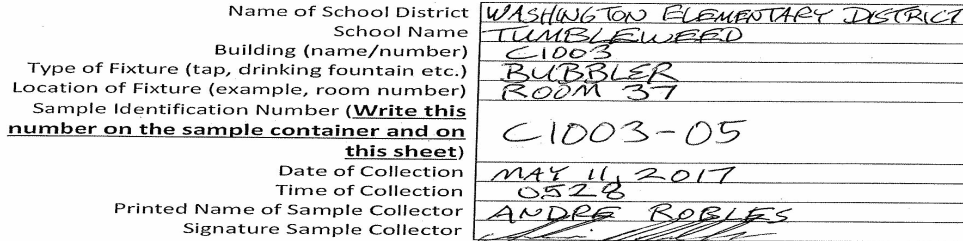 Name of School District WASHINGTON ELEMENTARY DISTRICT
School Name TUMBLEWEED
Building (name/number) C1003
Type of Fixture (tap, drinking fountain etc.) BUBBLER
Location of Fixture (example, room number) ROOM 37
Sample Identification Number (Write this
number on the sample container and on C1003-05
this sheet)
Date of Collection MAY 11, 2017
Time of Collection 0528
Printed Name of Sample Collector ANDRE ROBLES
Signature Sample Collector